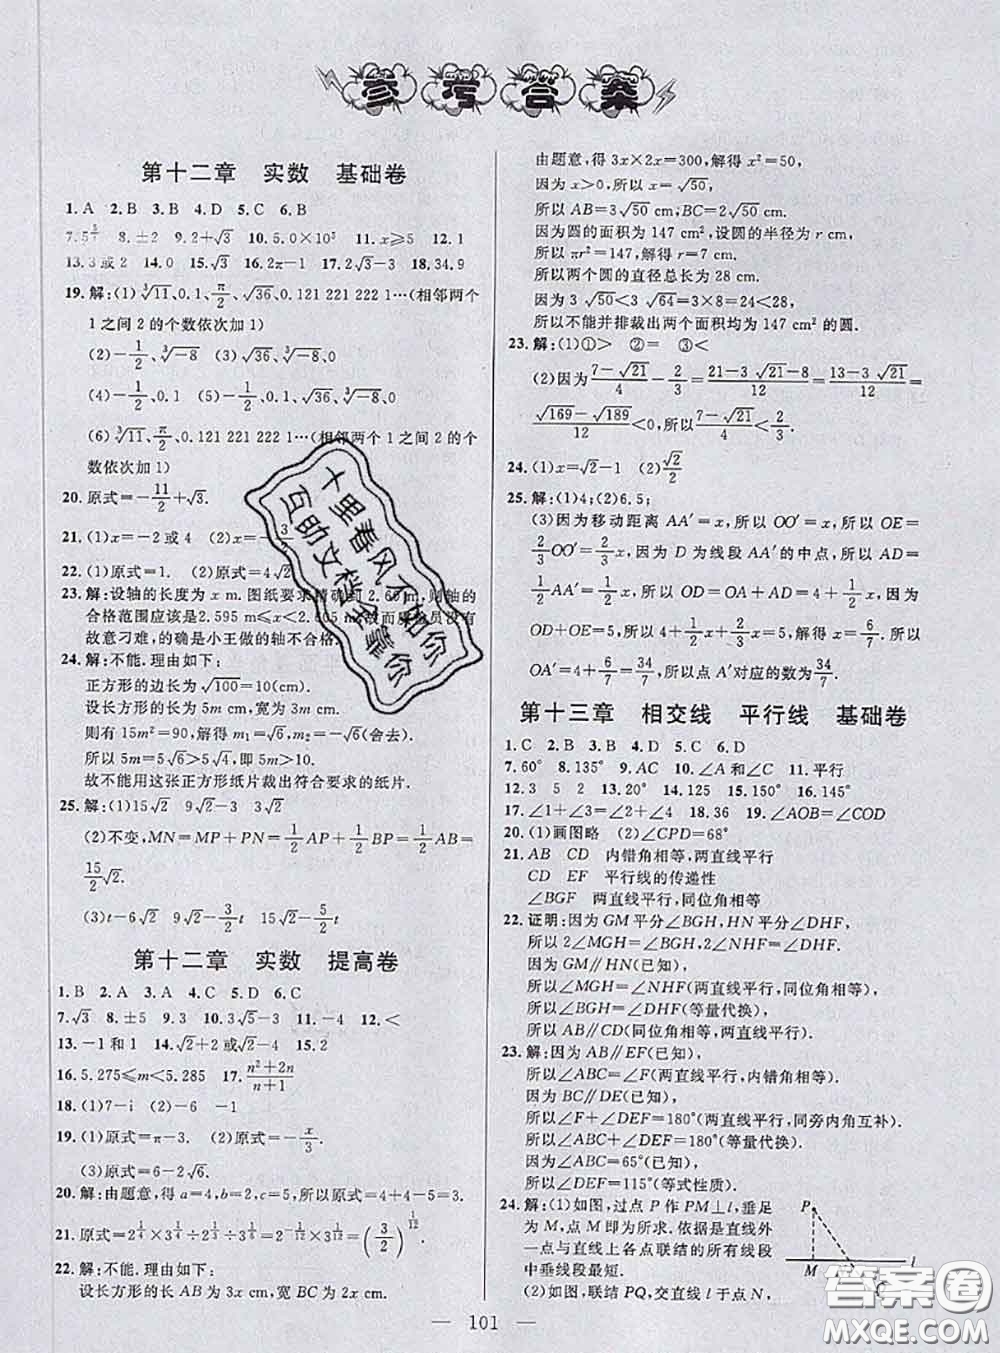 参考答案
第十二章 实数 基础卷
1.A 2.B 3.B 4.D 5.C 6.B
8.±2 9.2+√3 10.5.0×10⁵ 11.x≥5 12.1
13.3或2 14.0 15.√3 16.2π−1 17.2√3−3 18.34.9
19.解:(1)³√11、0.1、π/2、√36、0.121 221 222 1…(相邻两个
1之间2的个数依次加1)
(2)−1/2、³√−8 (3)√36、³√−8、0
(4)−1/2、0.1 (5)−1/2、0.1、√36、³√−8、0
(6)³√11、π/2、0.121 221 222 1…(相邻两个1之间2的个
数依次加1)
20.原式=−11/2+√3.
21.(1)x=−2或4 (2)x=
22.(1)原式= (2)原式=4√2
23.解:设轴的长度为x m.图纸要求精确到2.60 m,则轴的
合格范围应该是2.595 m≤x<2.605 m,故而质检员没有
故意刁难,的确是小王做的轴不合格.
24.解:不能.理由如下:
正方形的边长为√100=10(cm).
设长方形的长为5m cm,宽为3m cm.
则有15m²=90,解得m₁=√6,m₂=−√6(舍去).
所以5m=5√6>5√4,即5m>10.
故不能用这张正方形纸片裁出符合要求的纸片.
25.解:(1)15√2 9√2−3 3√2
(2)不变,MN=MP+PN=1/2AP+1/2BP=1/2AB=
15/2√2.
(3)t−6√2 9√2−3/2t 15√2−5/2t
第十二章 实数 提高卷
1.B 2.A 3.A 4.C 5.D 6.C
7.√3 8.±5 9.3 10.3√5−3 11.−4 12.<
13.−1和1 14.√2+2或√2−4 15.2
16.5.275≤m<5.285 17.(n²+2n)/(n+1)
18.(1)7−i (2)−6 −1
19.(1)原式=π−3. (2)原式=−x/3.
(3)原式=6−2√6.
20.解:由题意,得a=4,b=2,c=5,所以原式=4+4−5=3.
21.原式=2^(1/4)×3^(1/4)÷2^(1/3)÷3^(1/6)=2^(−1/12)×3^(1/12)=(3/2)^(1/12).
22.解:不能.理由如下:
设长方形的长AB为3x cm,宽BC为2x cm.
由题意,得3x×2x=300,解得x²=50,
因为x>0,所以x=√50,
所以AB=3√50 cm,BC=2√50 cm.
因为圆的面积为147 cm²,设圆的半径为r cm,
所以πr²=147,解得r=7.
所以两个圆的直径总长为28 cm.
因为3√50<3√64=3×8=24<28,
所以不能并排裁出两个面积均为147 cm²的圆.
23.解:(1)①> ②= ③<
(2)因为(7−√21)/4−2/3=(21−3√21−8)/12=(13−3√21)/12=
(√169−√189)/12<0,所以(7−√21)/4<2/3.
24.(1)x=√2−1 (2)√2/2
25.解:(1)4;(2)6.5;
(3)因为移动距离AA′=x,所以OO′=x,所以OE=
2/3OO′=2/3x,因为D为线段AA′的中点,所以AD=
1/2AA′=1/2x,所以OD=OA+AD=4+1/2x,因为
OD+OE=5,所以4+1/2x+2/3x=5,解得x=6/7.所以
OA′=4+6/7=34/7,所以点A′对应的数为34/7.
第十三章 相交线 平行线 基础卷
1.C 2.B 3.B 4.D 5.C 6.D
7.60° 8.135° 9.AC 10.∠A和∠C 11.平行
12.3 5 2 13.20° 14.125 15.150° 16.145°
17.∠1+∠3=∠2+∠4 18.36 19.∠AOB=∠COD
20.(1)画图略 (2)∠CPD=68°
21.AB CD 内错角相等,两直线平行
CD EF 平行线的传递性
∠BGF 两直线平行,同位角相等
22.证明:因为GM平分∠BGH,HN平分∠DHF,
所以2∠MGH=∠BGH,2∠NHF=∠DHF.
因为GM∥HN(已知),
所以∠MGH=∠NHF(两直线平行,同位角相等),
所以∠BGH=∠DHF(等量代换),
所以AB∥CD(同位角相等,两直线平行).
23.解:因为AB∥EF(已知),
所以∠ABC=∠F(两直线平行,内错角相等).
因为BC∥DE(已知),
所以∠F+∠DEF=180°(两直线平行,同旁内角互补).
所以∠ABC+∠DEF=180°(等量代换).
因为∠ABC=65°(已知),
所以∠DEF=115°(等式性质).
24.解:(1)如图,过点P作PM⊥l,垂足
为M,点M即为所求.依据是直线外
一点与直线上各点联结的所有线段
中垂线段最短.
(2)如图,联结PQ,交直线l于点N,
P
M
l
十里春风不如你
互助文档全靠你
答案圈
MXQE.COM
— 101 —